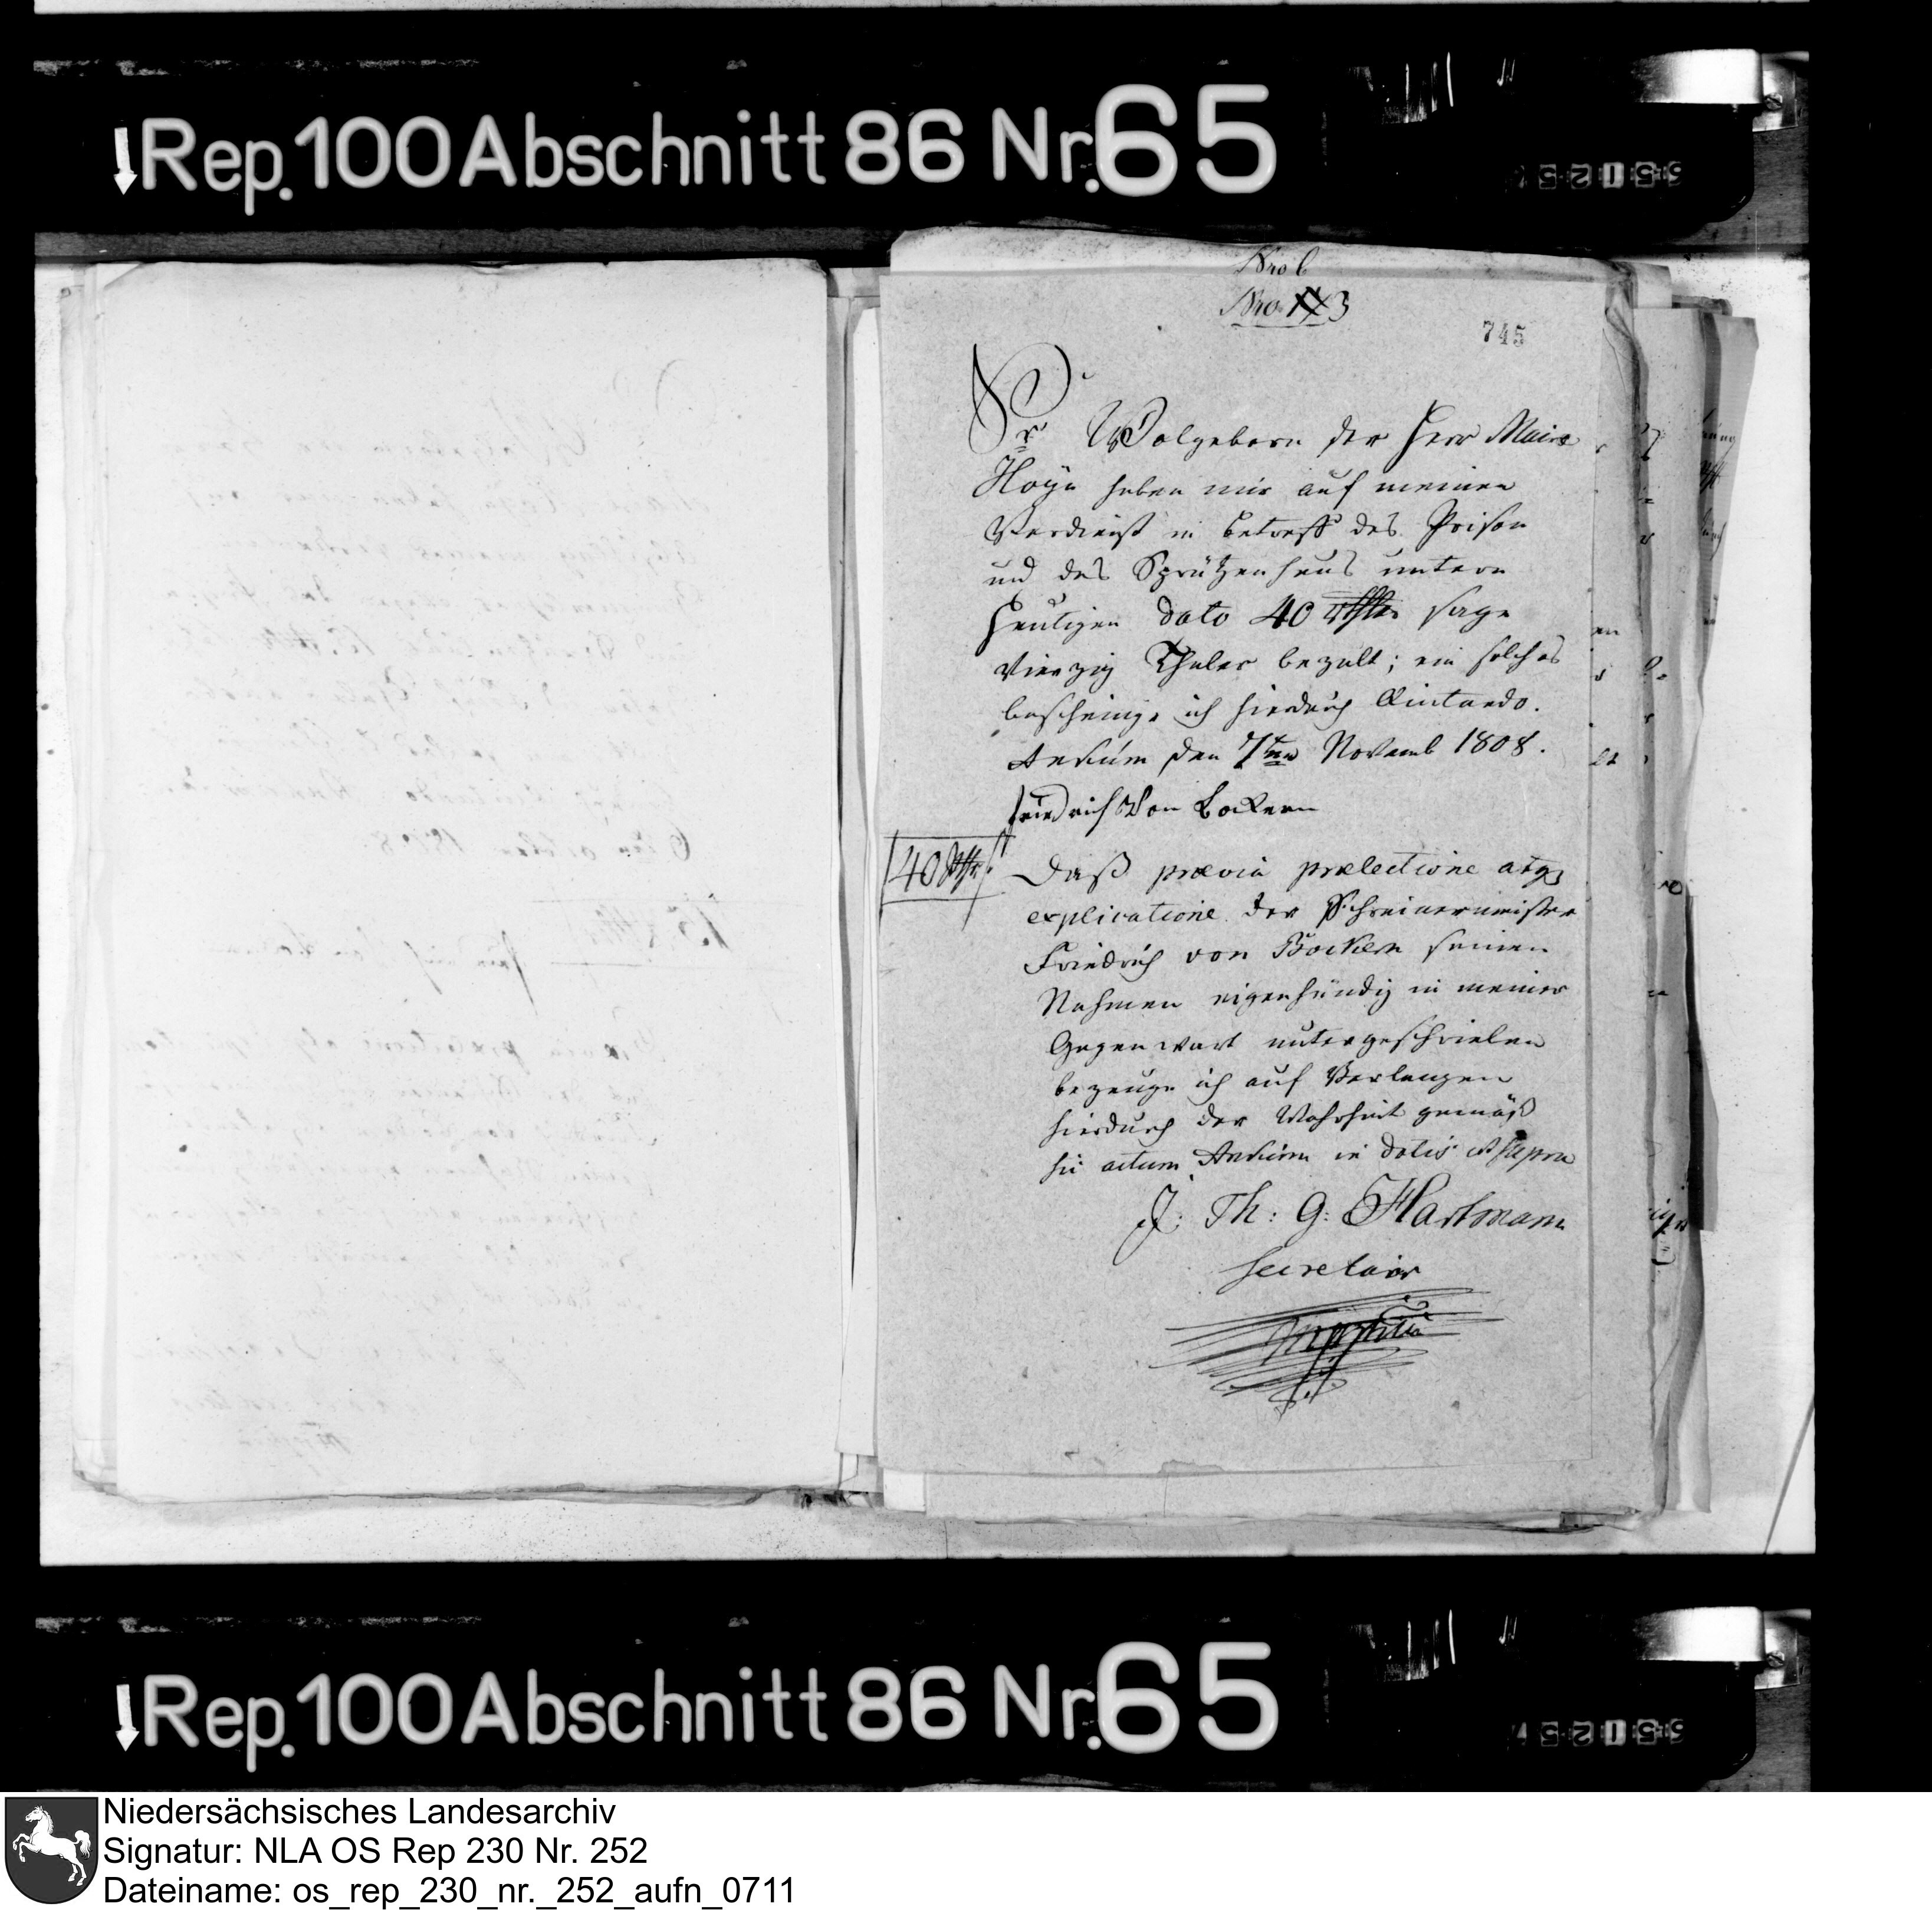 Rep. 100 Abschnitt 86 Nr. 65
Nro 6
Nro 3
745
Sr Wolgeborn der Herr Maire
Hoya haben mir auf meinen
Verdienst in betreff des Prison
und des Sprützenhaus untern
heutigen dato 40 rthlr sage
Vierzig Thaler bezalt; ein solches
bescheinige ich hierdurch Quitando.
Ankum den 7ten Novemb 1808.
friedrich Von Bockern
40 Rthr
Daß prævia prælectione atq
explicatione der Schreinermeister
Friedrich von Bockern seinen
Nahmen eigenhändig in meiner
Gegenwart untergeschrieben
bezeuge ich auf Verlangen
hierdurch der Wahrheit gemäß
sic actum Ankum in datis ut supra
J: Th: G: Hartmann
Secretair
mppria
Rep. 100 Abschnitt 86 Nr. 65
Niedersächsisches Landesarchiv
Signatur: NLA OS Rep 230 Nr. 252
Dateiname: os_rep_230_nr._252_aufn_0711